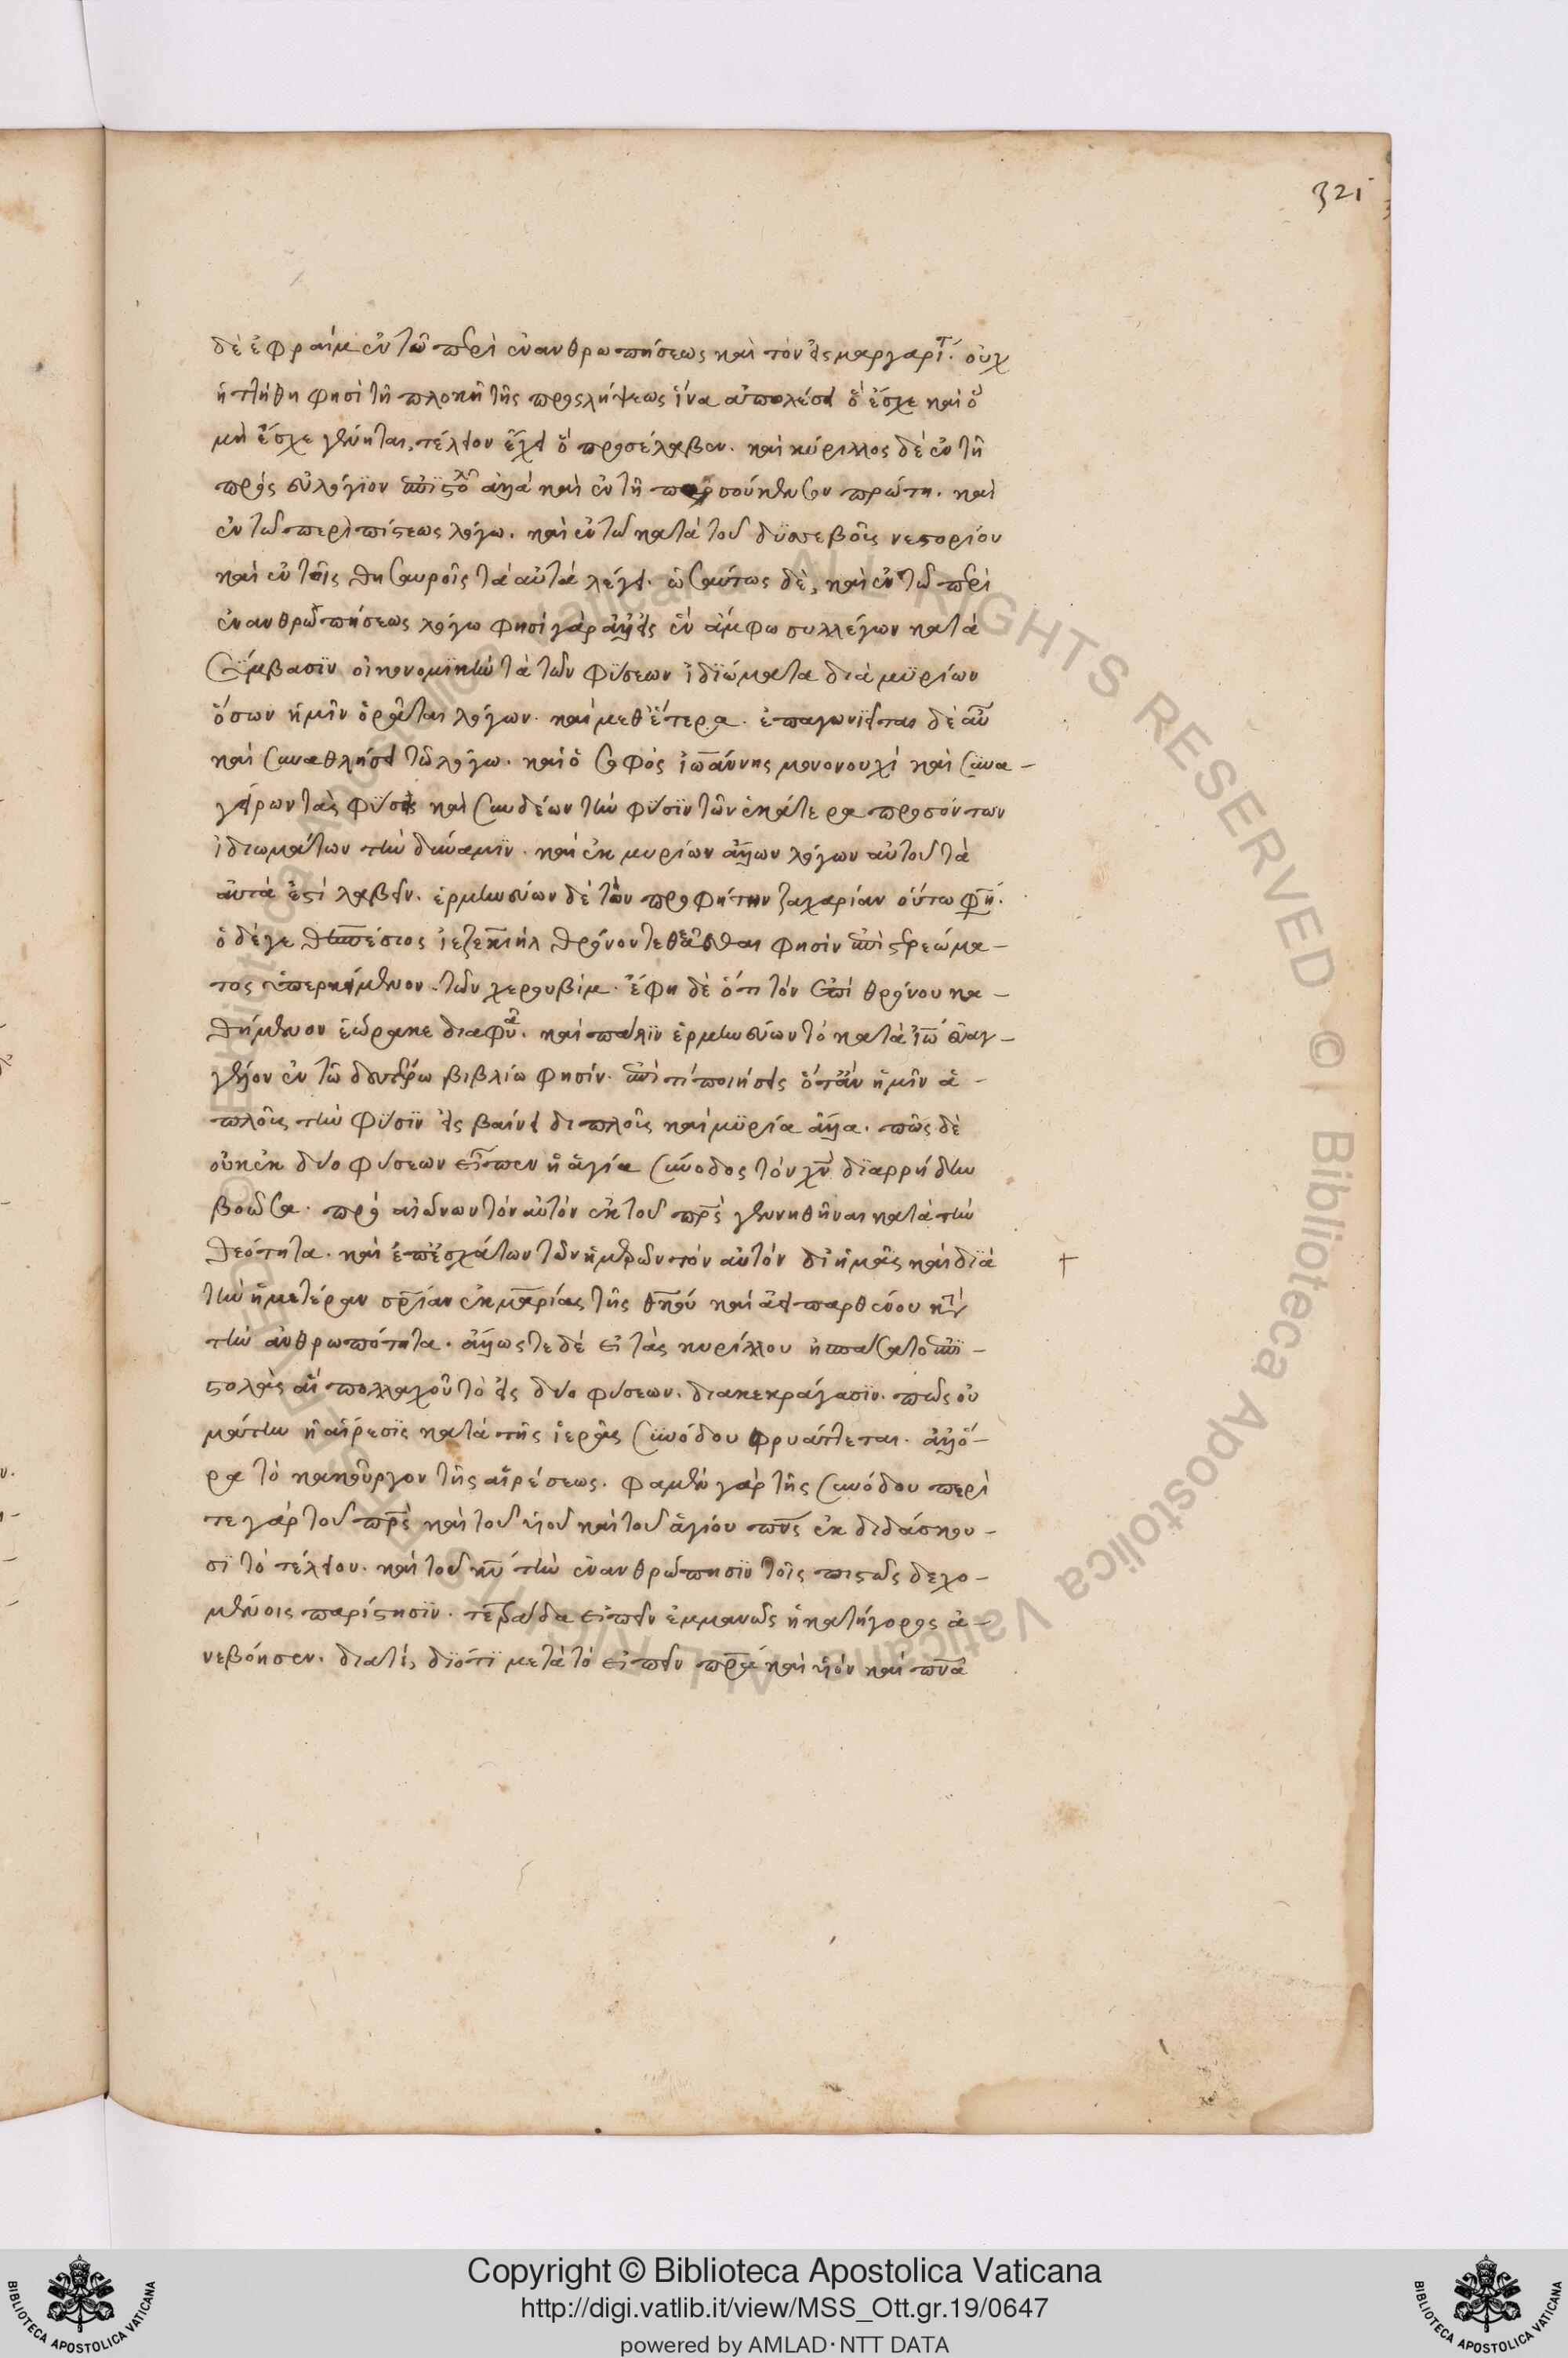 321
δὲ ἐφραὶμ ἐν τῶ περὶ ἐνανθρωπήσεως καὶ τὸν εἰς μαργαρίτ. οὐχ
ἡττήθη φησὶ τῆ πλοκῆ τῆς προσλήψεως ἵνα ἀπολέσει ὃ ἔσχε καὶ ὃ
μὴ ἔσχε γένηται, τέλειον ἔχει ὃ προσέλαβεν. καὶ κύριλλος δὲ ἐν τῆ
πρὸς εὐλόγιον ἐπϊστολ ἀλλὰ καὶ ἐν τῆ πρ σούκενσον πρώτη. καὶ
ἐν τῶ περὶ πίστεως λόγω. καὶ ἐν τῶ κατὰ τοῦ δυσσεβοῦς νεστορίου
καὶ ἐν τοῖς θησαυροῖς τὰ αὐτὰ λέγει. ὡσαύτως δὲ, καὶ ἐν τῶ περὶ
ἐνανθρωπήσεως λόγω φησὶ γὰρ ἀλλ' εἰς ἓν ἄμφω συλλέγων κατὰ
σύμβασϊν οἰκονομϊκὴν τὰ τῶν φύσεων ἰδϊώματα διὰ μϋρίων
ὅσων ἡμῖν ὁρᾶται λόγων. καὶ μεθ' ἕτερα. ἐπαγωνίζεται δὲ αὖ
καὶ συναθλήσει τῶ λόγω. καὶ ὁ σοφὸς ἰωάννης μονονουχὶ καὶ συνα-
γείρων τὰς φύσεις καὶ συνδέων τὴν φύσϊν τῶν ἑκάτερα προσόντων
ἰδιωμάτων τὴν δύναμϊν. καὶ ἐκ μυρίων ἄλλων λόγων αὐτοῦ τὰ
αὐτὰ ἐστὶ λαβεῖν. ἑρμηνεύων δὲ τὸν προφήτην ζαχαρίαν οὕτω φη.
ὁ δέ γε θεσπέσιος ἰεζεκιὴλ θρόνον τεθεᾶσθαι φησὶν ἐπὶ στερεώμα-
τος ὑπερκείμενον τῶν χερουβίμ. ἔφη δὲ ὅτι τὸν ἐπὶ θρόνου κα-
θήμενον ἑώρακε διαφν. καὶ πάλϊν ἑρμηνεύων τὸ κατὰ ἰω εὐαγ-
γέλιον ἐν τῶ δευτέρω βιβλίω φησίν. ἐπεὶ τί ποιήσεις ὅταν ἡμῖν ἁ-
πλοῦς τὴν φύσϊν εἰς βαίνει διπλοῦς καὶ μϋρία ἄλλα. πῶς δὲ
οὐκ ἐκ δύο φύσεων εἶπεν ἡ ἁγία σύνοδος τὸν χν δϊαρρήδην
βοῶσα. πρὸ αἰώνων τὸν αὐτὸν ἐκ τοῦ πρς γεννηθῆναι κατὰ τὴν
θεότητα. καὶ ἐπ' ἐσχάτων τῶν ἡμερῶν τὸν αὐτὸν δι' ἡμᾶς καὶ δϊὰ
τὴν ἡμετέραν σρίαν ἐκ μαρίας τῆς θκου καὶ ἀεὶ παρθένου κτ
τὴν ἀνθρωπότητα. ἄλλως τε δὲ εἰ τὰς κυρίλλου ἠσπάσατο ἐπϊ-
στολὰς αἳ πολλαχοῦ τὸ εἰς δύο φύσεων. διακεκράγασϊν. πῶς οὐ
μάτην ἡ αἵρεσϊς κατὰ τῆς ἱερᾶς συνόδου φρυάττεται. ἀλλ' ὅ-
ρα τὸ κακοῦργον τῆς αἱρέσεως. φαμὲν γὰρ τῆς συνόδου περὶ
τε γὰρ τοῦ πρς καὶ τοῦ υἱοῦ καὶ τοῦ ἁγίου πνς ἐκ διδάσκου-
σϊ τὸ τέλειον. καὶ τοῦ κυ τὴν ἐνανθρώπησϊν τοῖς πιστῶς δεχο-
μένοις παρίστησϊν. τετράδα εἰπεῖν ἐμμανῶς ἡ κατήγορος ἀ-
νεβόησεν. διατί, δϊότϊ μετὰ τὸ εἰπεῖν πρα καὶ υἱὸν καὶ πνα
Copyright © Biblioteca Apostolica Vaticana
http://digi.vatlib.it/view/MSS_Ott.gr.19/0647
powered by AMLAD·NTT DATA